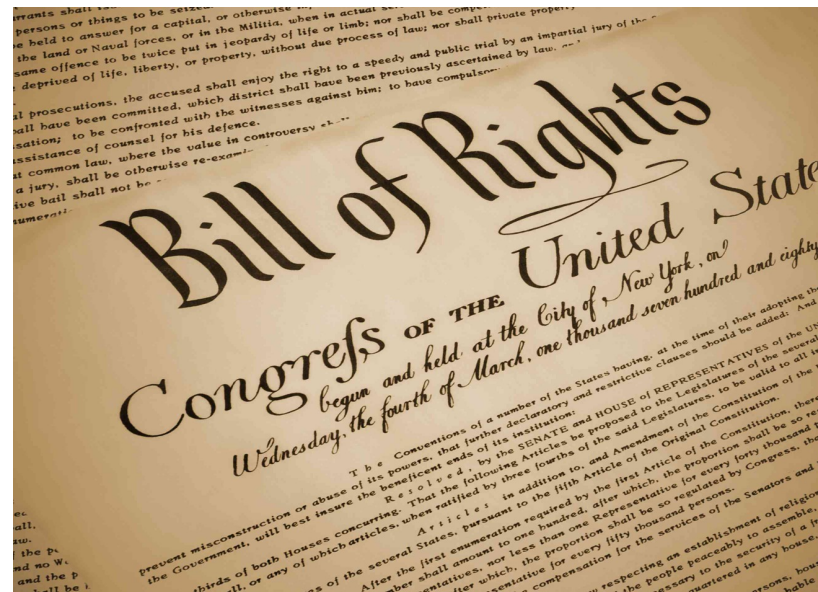 rrants shall
persons or things to be seized
be held to answer for a capital, or otherwise
the land or Naval forces, or in the Militia, when in actual
same offence to be twice put in jeopardy of life or limb; nor shall be
deprived of life, liberty, or property, without due process of law; nor shall private property
al prosecutions, the accused shall enjoy the right to a speedy and public trial by an impartial jury of the
all have been committed, which district shall have been previously ascertained by law,
sation; to be confronted with the witnesses against him; to have compulsory
ssistance of counsel for his defence.
t common law, where the value in controversy
a jury, shall be otherwise re-exami
ive bail shall not be
Bill of Rights
Congreſs OF THE United State
begun and held at the City of New York, on
Wednesday, the fourth of March, one thousand seven hundred and eighty
The Conventions of a number of the States having, at the time of their adopting the
prevent misconstruction or abuse of its powers, that further declaratory and restrictive clauses should be added: And
the Government, will best insure the beneficent ends of its institution:
Resolved, by the SENATE and HOUSE of REPRESENTATIVES of the UN
thirds of both Houses concurring. That the following Articles be proposed to the Legislatures of the several
all, or any of which articles, when ratified by three fourths of the said Legislatures, to be valid to all in
Articles in addition to, and Amendment of the Constitution of the
es of the several States, pursuant to the fifth Article of the Original Constitution.
After the first enumeration required by the first Article of the Constitution, there
mber shall amount to one hundred, after which, the proportion shall be so re
entatives, nor less than one Representative for every forty thousand p
after which, the proportion shall be so regulated by Congress, th
sentative for every fifty thousand persons.
compensation for the services of the Senators and
respecting an establishment of religion
the people peaceably to assemble,
cessary to the security of a fr
quartered in any house,
all,
aw.
the
nd no
and the p
hall be